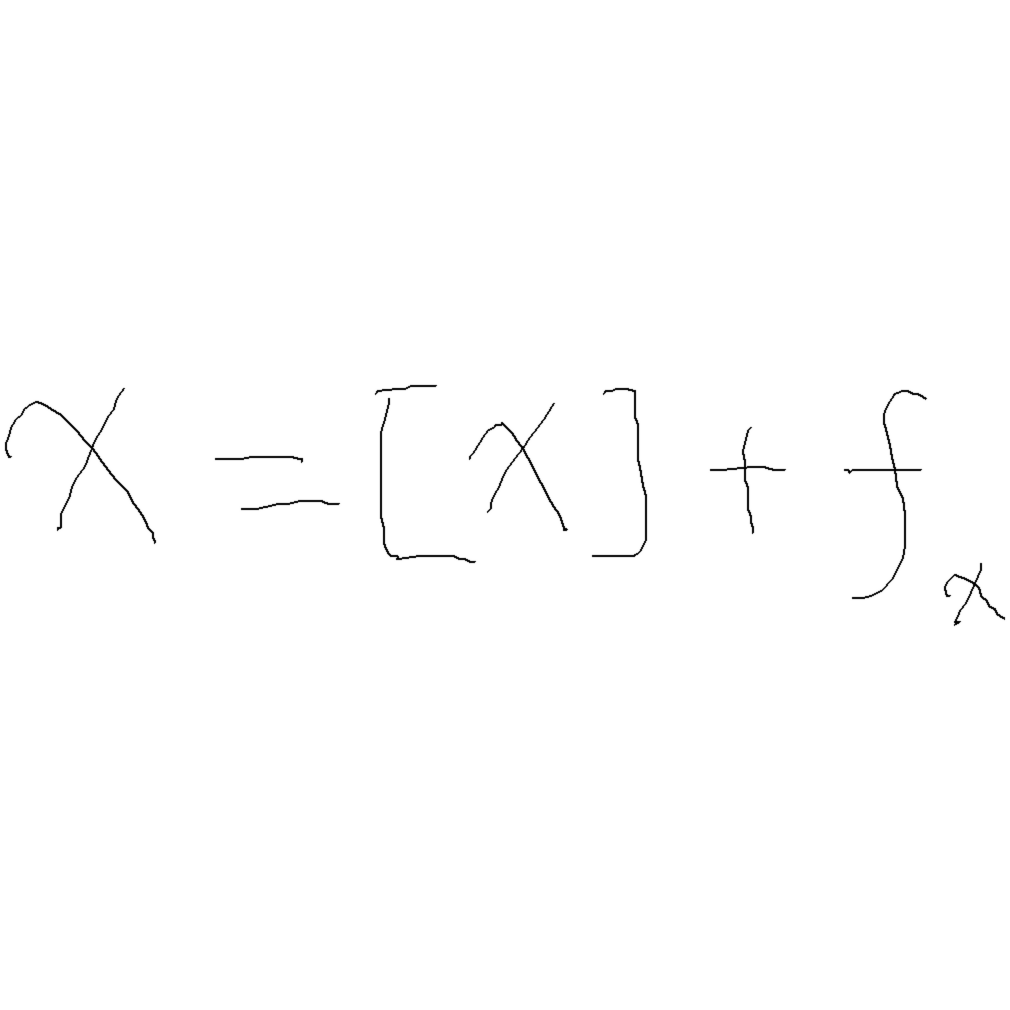 x = [x] + fₓ